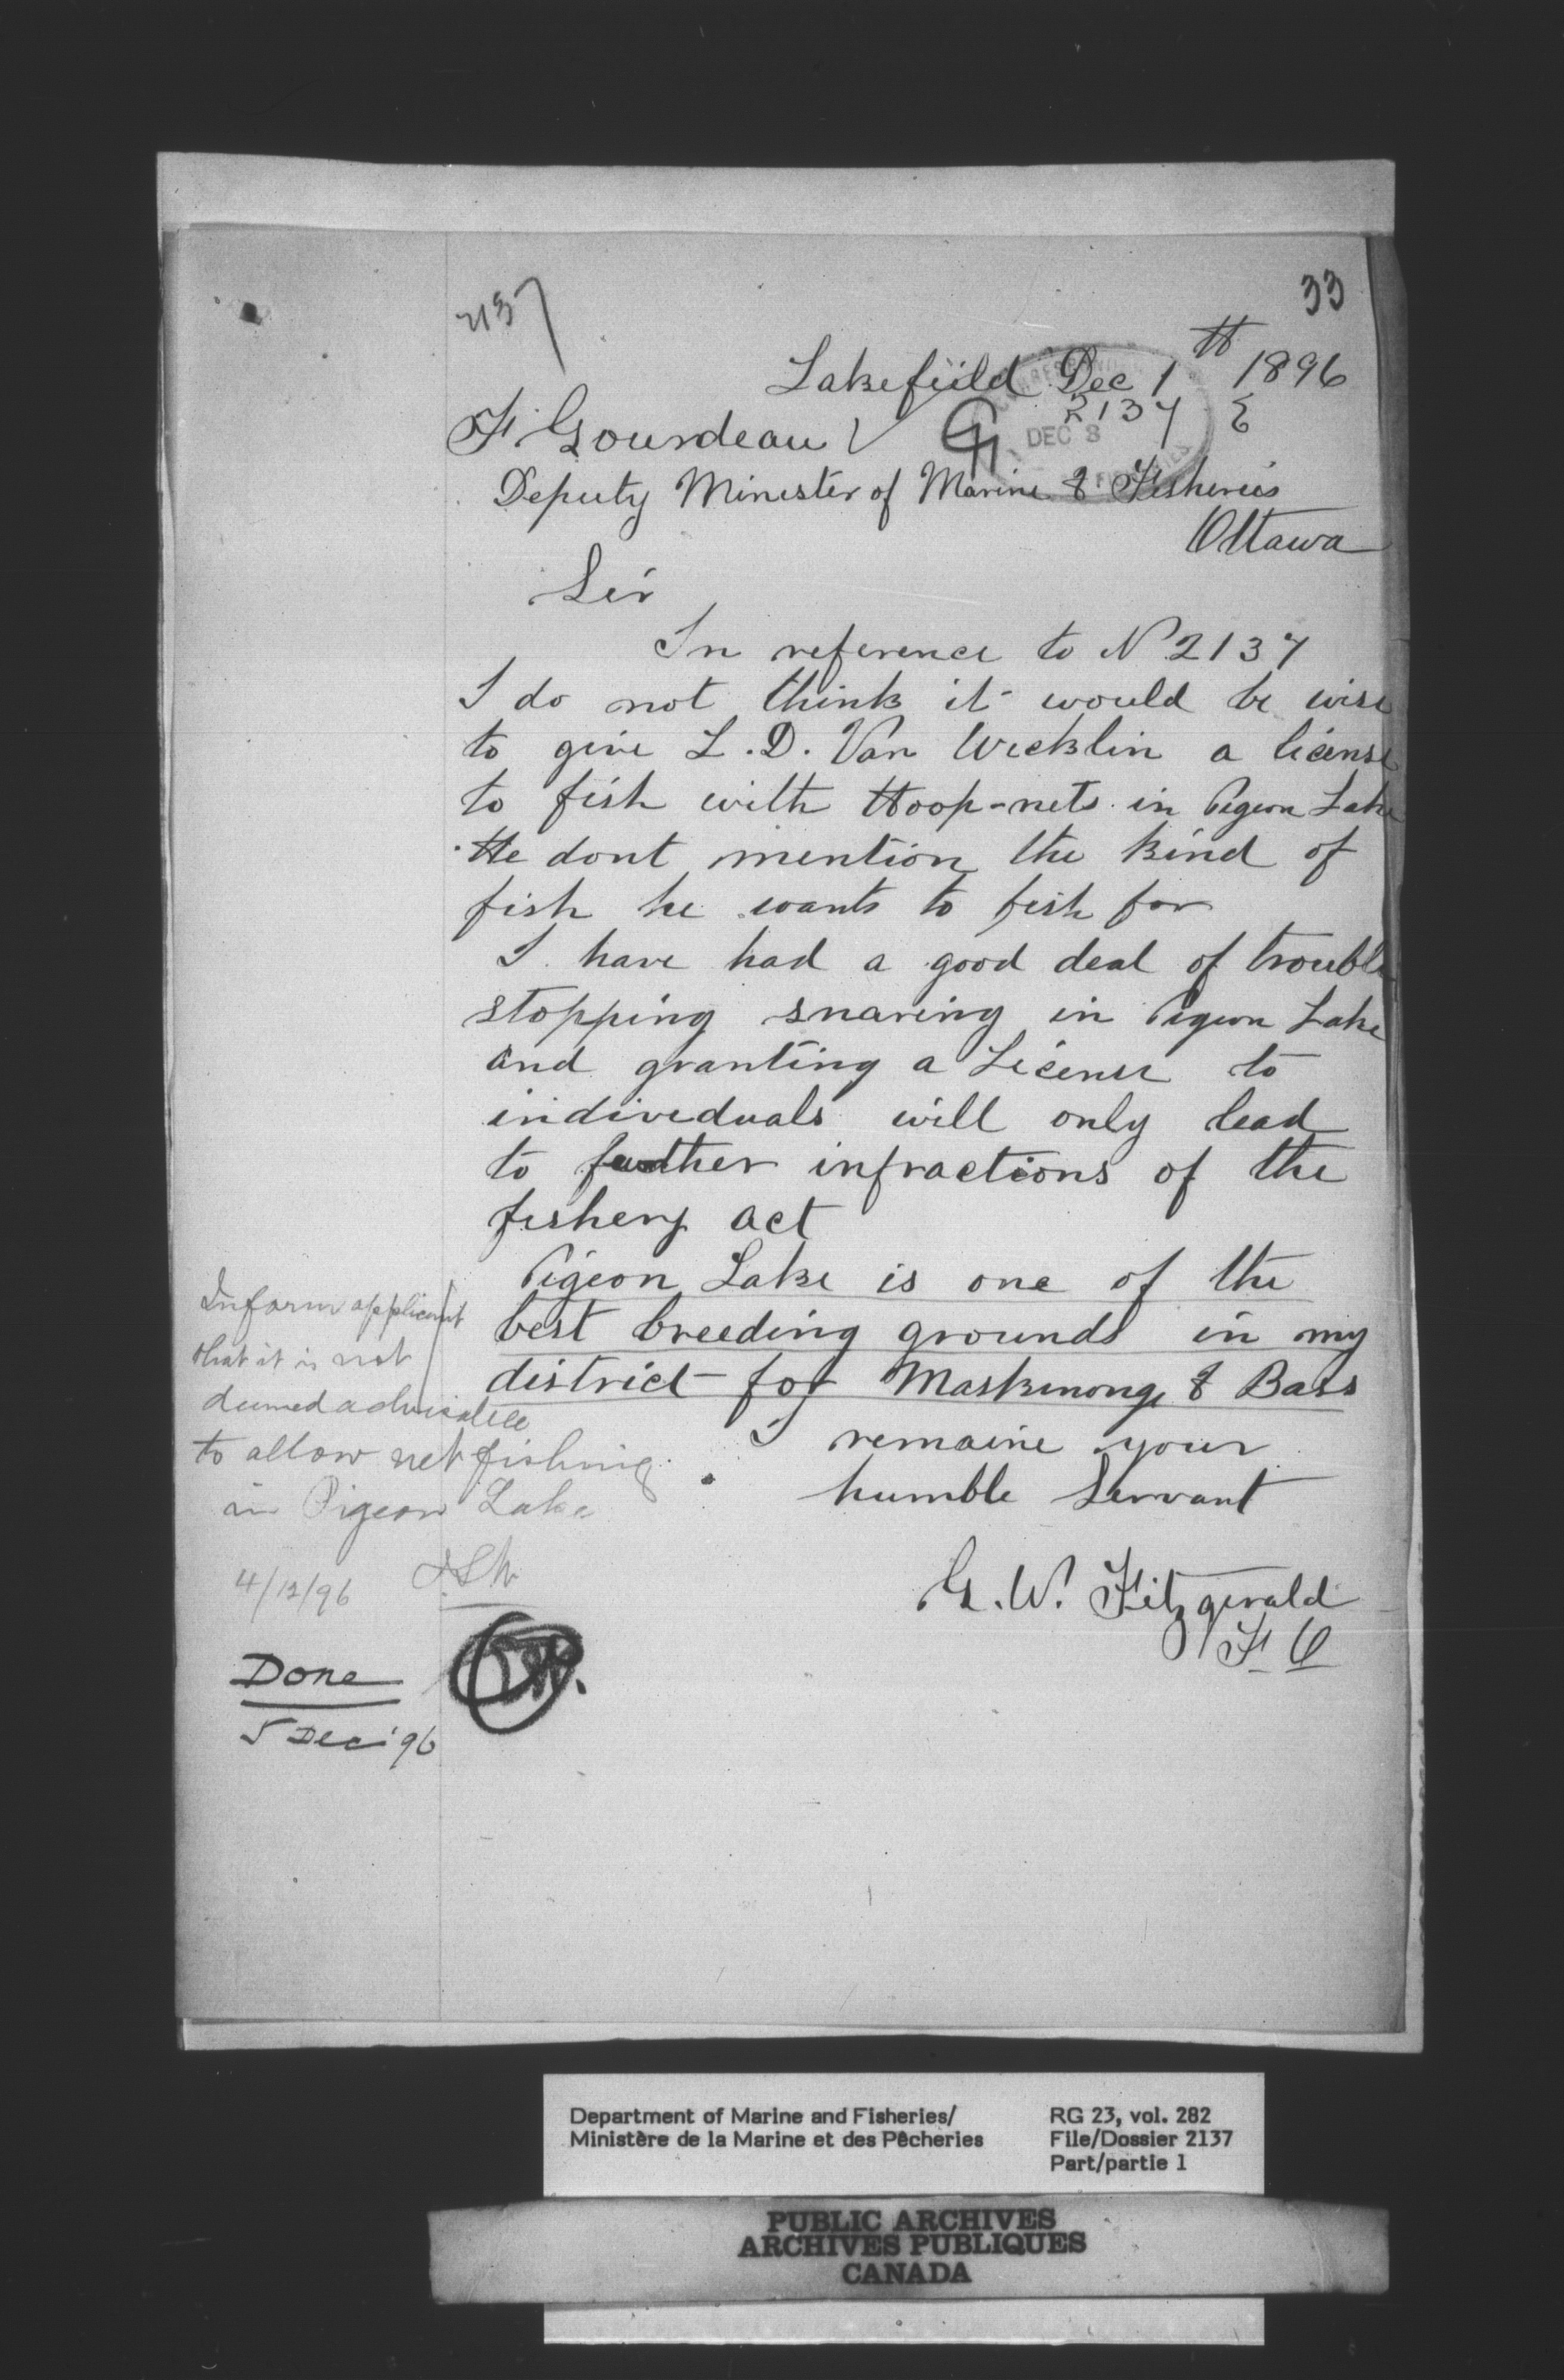 2137
33
Lakefield Dec 1th 1896
2137 E
DEC 3
F Gourdeau
Deputy Minister of Marine & Fisheries
Ottawa
Sir
In reference to No 2137
I do not think it would be wise
to give L. D. Van Wicklin a license
to fish with Hoop-nets in Pigeon Lake
He dont mention the kind of
fish he wants to fish for
I have had a good deal of trouble
stopping snaring in Pigeon Lake
and granting a License to
individuals will only lead
to further infractions of the
fishery act
Pigeon Lake is one of the
best breeding grounds in my
district for Maskinonge & Bass
I remaine your
humble Servant
G. W. Fitzgerald
F O
Inform applicant
that it is not
deemed advisable
to allow net fishing
in Pigeon Lake
4/12/96
Done
5 Dec '96
Department of Marine and Fisheries/
Ministère de la Marine et des Pêcheries
RG 23, vol. 282
File/Dossier 2137
Part/partie 1
PUBLIC ARCHIVES
ARCHIVES PUBLIQUES
CANADA